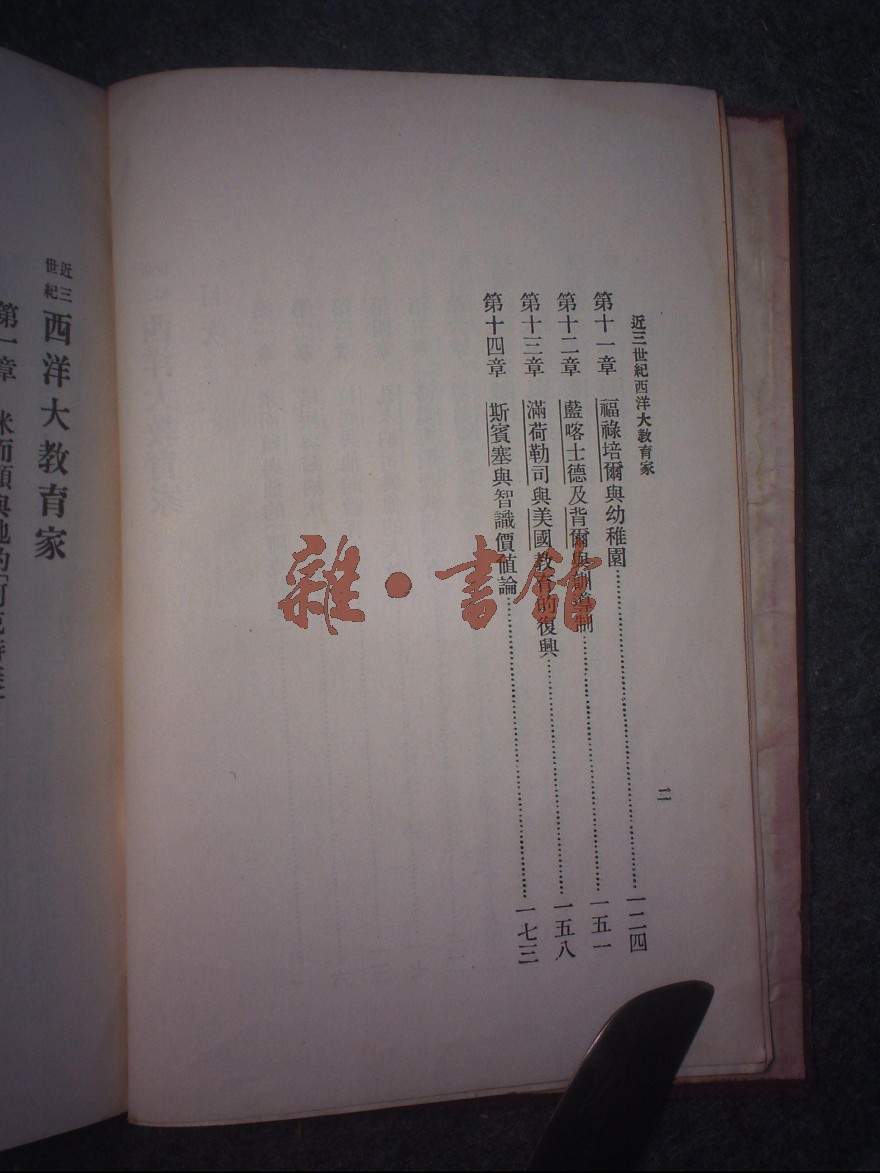 近三世紀西洋大教育家
二
第十一章 福祿培爾與幼稚園……一二四
第十二章 藍喀士德及背爾與訓導制……一五一
第十三章 滿荷勒司與美國教育的復興……一五八
第十四章 斯賓塞與智識價值論……一七三
雜·書館
近三世紀西洋大教育家
第一章